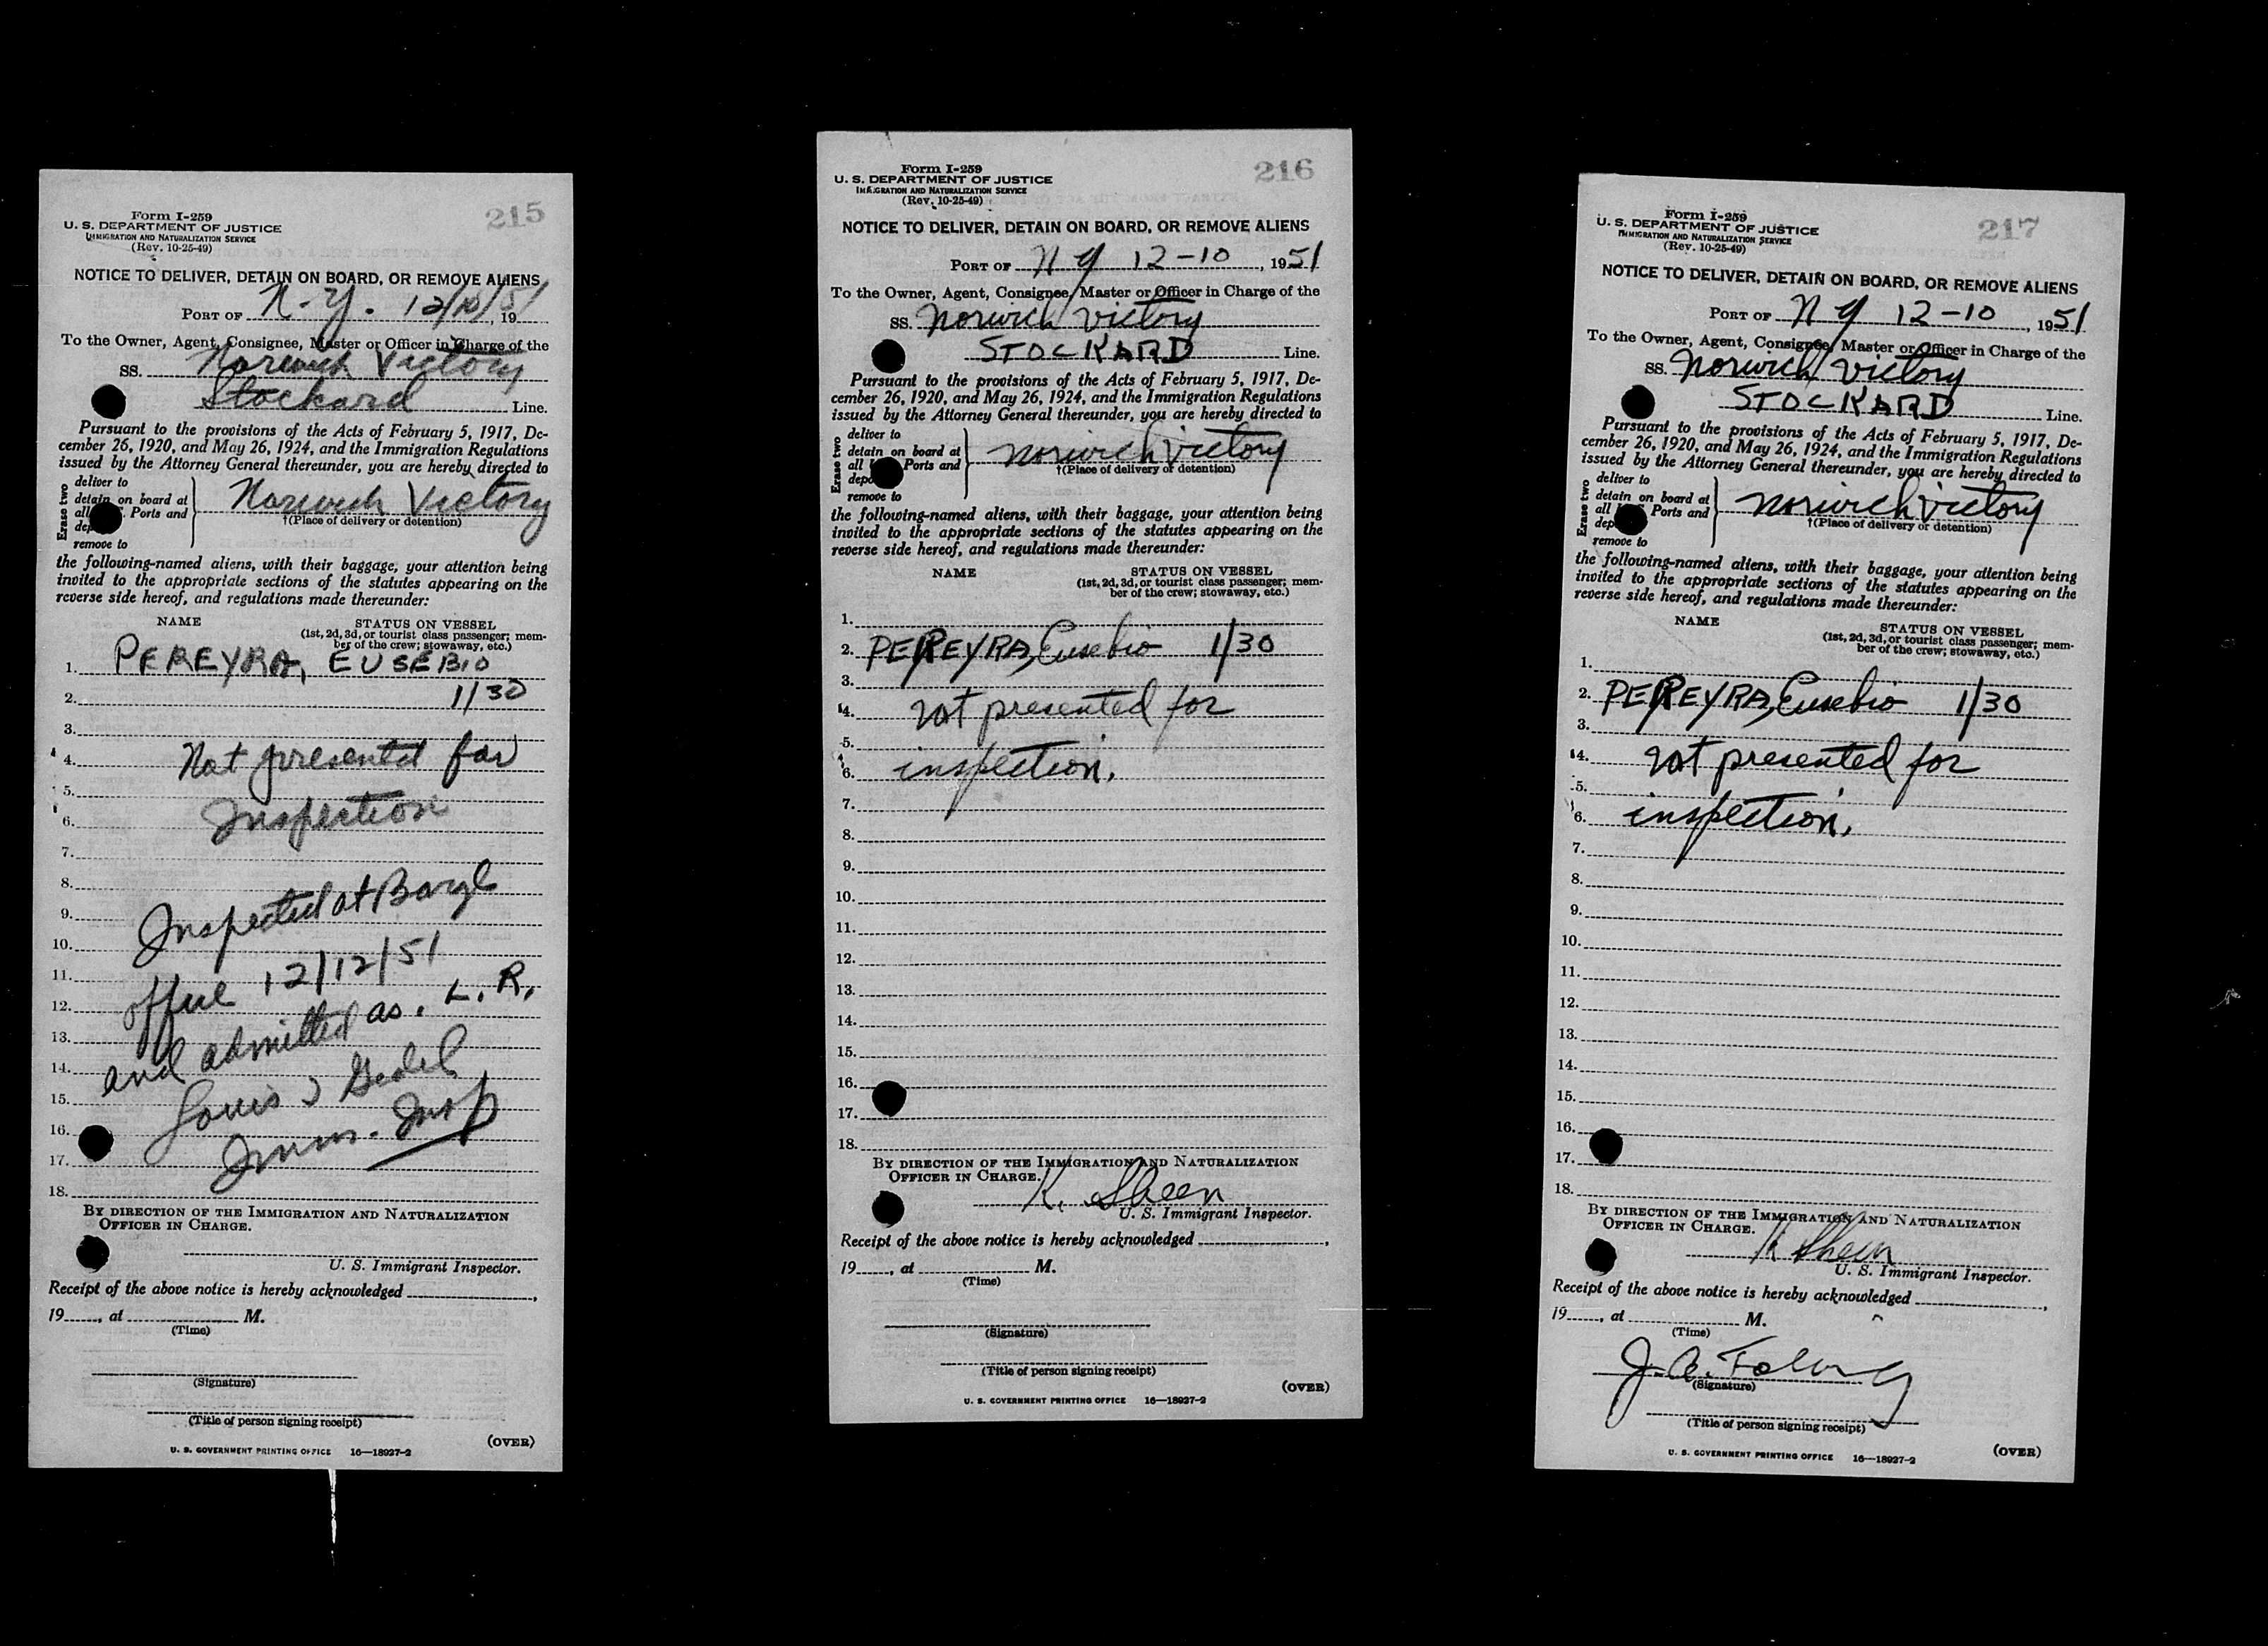 215
Form I-259
U. S. DEPARTMENT OF JUSTICE
IMMIGRATION AND NATURALIZATION SERVICE
(Rev. 10-25-49)
NOTICE TO DELIVER, DETAIN ON BOARD, OR REMOVE ALIENS
PORT OF N.Y. 12/10/51, 19
To the Owner, Agent, Consignee, Master or Officer in Charge of the
SS. Norwich Victory
Stockard Line.
Pursuant to the provisions of the Acts of February 5, 1917, De-
cember 26, 1920, and May 26, 1924, and the Immigration Regulations
issued by the Attorney General thereunder, you are hereby directed to
Erase two
deliver to
detain on board at
all Ports and
dep
remove to
Norwich Victory
†(Place of delivery or detention)
the following-named aliens, with their baggage, your attention being
invited to the appropriate sections of the statutes appearing on the
reverse side hereof, and regulations made thereunder:
NAME STATUS ON VESSEL
(1st, 2d, 3d, or tourist class passenger; mem-
ber of the crew; stowaway, etc.)
1. PEREYRA, EUSEBIO
2. 1/30
3.
4. Not presented for
5.
6. Inspection
7.
8.
9. Inspected at Barge
10.
11. office 12/12/51
12.
13. and admitted as. L. R.
14.
15. Louis
16.
17. Imm. Insp
18.
BY DIRECTION OF THE IMMIGRATION AND NATURALIZATION
OFFICER IN CHARGE.
U. S. Immigrant Inspector.
Receipt of the above notice is hereby acknowledged
19, at M.
(Time)
(Signature)
(Title of person signing receipt)
(OVER)
U. S. GOVERNMENT PRINTING OFFICE 16—18927-2
216
Form I-259
U. S. DEPARTMENT OF JUSTICE
IMMIGRATION AND NATURALIZATION SERVICE
(Rev. 10-25-49)
NOTICE TO DELIVER, DETAIN ON BOARD, OR REMOVE ALIENS
PORT OF NY 12-10, 1951
To the Owner, Agent, Consignee, Master or Officer in Charge of the
SS. Norwich Victory
STOCKARD Line.
Pursuant to the provisions of the Acts of February 5, 1917, De-
cember 26, 1920, and May 26, 1924, and the Immigration Regulations
issued by the Attorney General thereunder, you are hereby directed to
Erase two
deliver to
detain on board at
all Ports and
depo
remove to
Norwich Victory
†(Place of delivery or detention)
the following-named aliens, with their baggage, your attention being
invited to the appropriate sections of the statutes appearing on the
reverse side hereof, and regulations made thereunder:
NAME STATUS ON VESSEL
(1st, 2d, 3d, or tourist class passenger; mem-
ber of the crew; stowaway, etc.)
1.
2. PEREYRA, Eusebio 1/30
3.
4. not presented for
5.
6. inspection.
7.
8.
9.
10.
11.
12.
13.
14.
15.
16.
17.
18.
BY DIRECTION OF THE IMMIGRATION AND NATURALIZATION
OFFICER IN CHARGE.
K. Sheen
U. S. Immigrant Inspector.
Receipt of the above notice is hereby acknowledged
19, at M.
(Time)
(Signature)
(Title of person signing receipt)
(OVER)
U. S. GOVERNMENT PRINTING OFFICE 16—18927-2
217
Form I-259
U. S. DEPARTMENT OF JUSTICE
IMMIGRATION AND NATURALIZATION SERVICE
(Rev. 10-25-49)
NOTICE TO DELIVER, DETAIN ON BOARD, OR REMOVE ALIENS
PORT OF NY 12-10, 1951
To the Owner, Agent, Consignee, Master or Officer in Charge of the
SS. Norwich Victory
STOCKARD Line.
Pursuant to the provisions of the Acts of February 5, 1917, De-
cember 26, 1920, and May 26, 1924, and the Immigration Regulations
issued by the Attorney General thereunder, you are hereby directed to
Erase two
deliver to
detain on board at
all Ports and
dep
remove to
Norwich Victory
†(Place of delivery or detention)
the following-named aliens, with their baggage, your attention being
invited to the appropriate sections of the statutes appearing on the
reverse side hereof, and regulations made thereunder:
NAME STATUS ON VESSEL
(1st, 2d, 3d, or tourist class passenger; mem-
ber of the crew; stowaway, etc.)
1.
2. PEREYRA, Eusebio 1/30
3.
4. not presented for
5.
6. inspection.
7.
8.
9.
10.
11.
12.
13.
14.
15.
16.
17.
18.
BY DIRECTION OF THE IMMIGRATION AND NATURALIZATION
OFFICER IN CHARGE.
K Sheen
U. S. Immigrant Inspector.
Receipt of the above notice is hereby acknowledged
19, at M.
(Time)
(Signature)
(Title of person signing receipt)
(OVER)
U. S. GOVERNMENT PRINTING OFFICE 16—18927-2